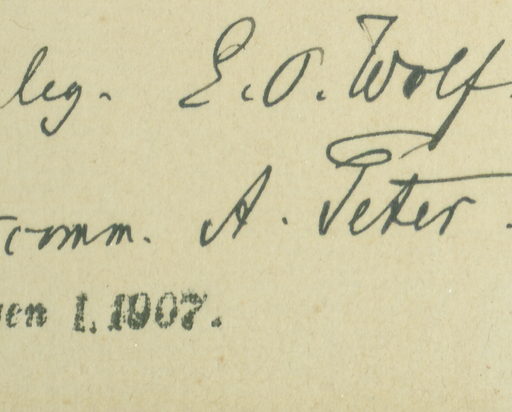 leg. E. O. Wolf.
comm. A. Peter.
en 1. 1907.